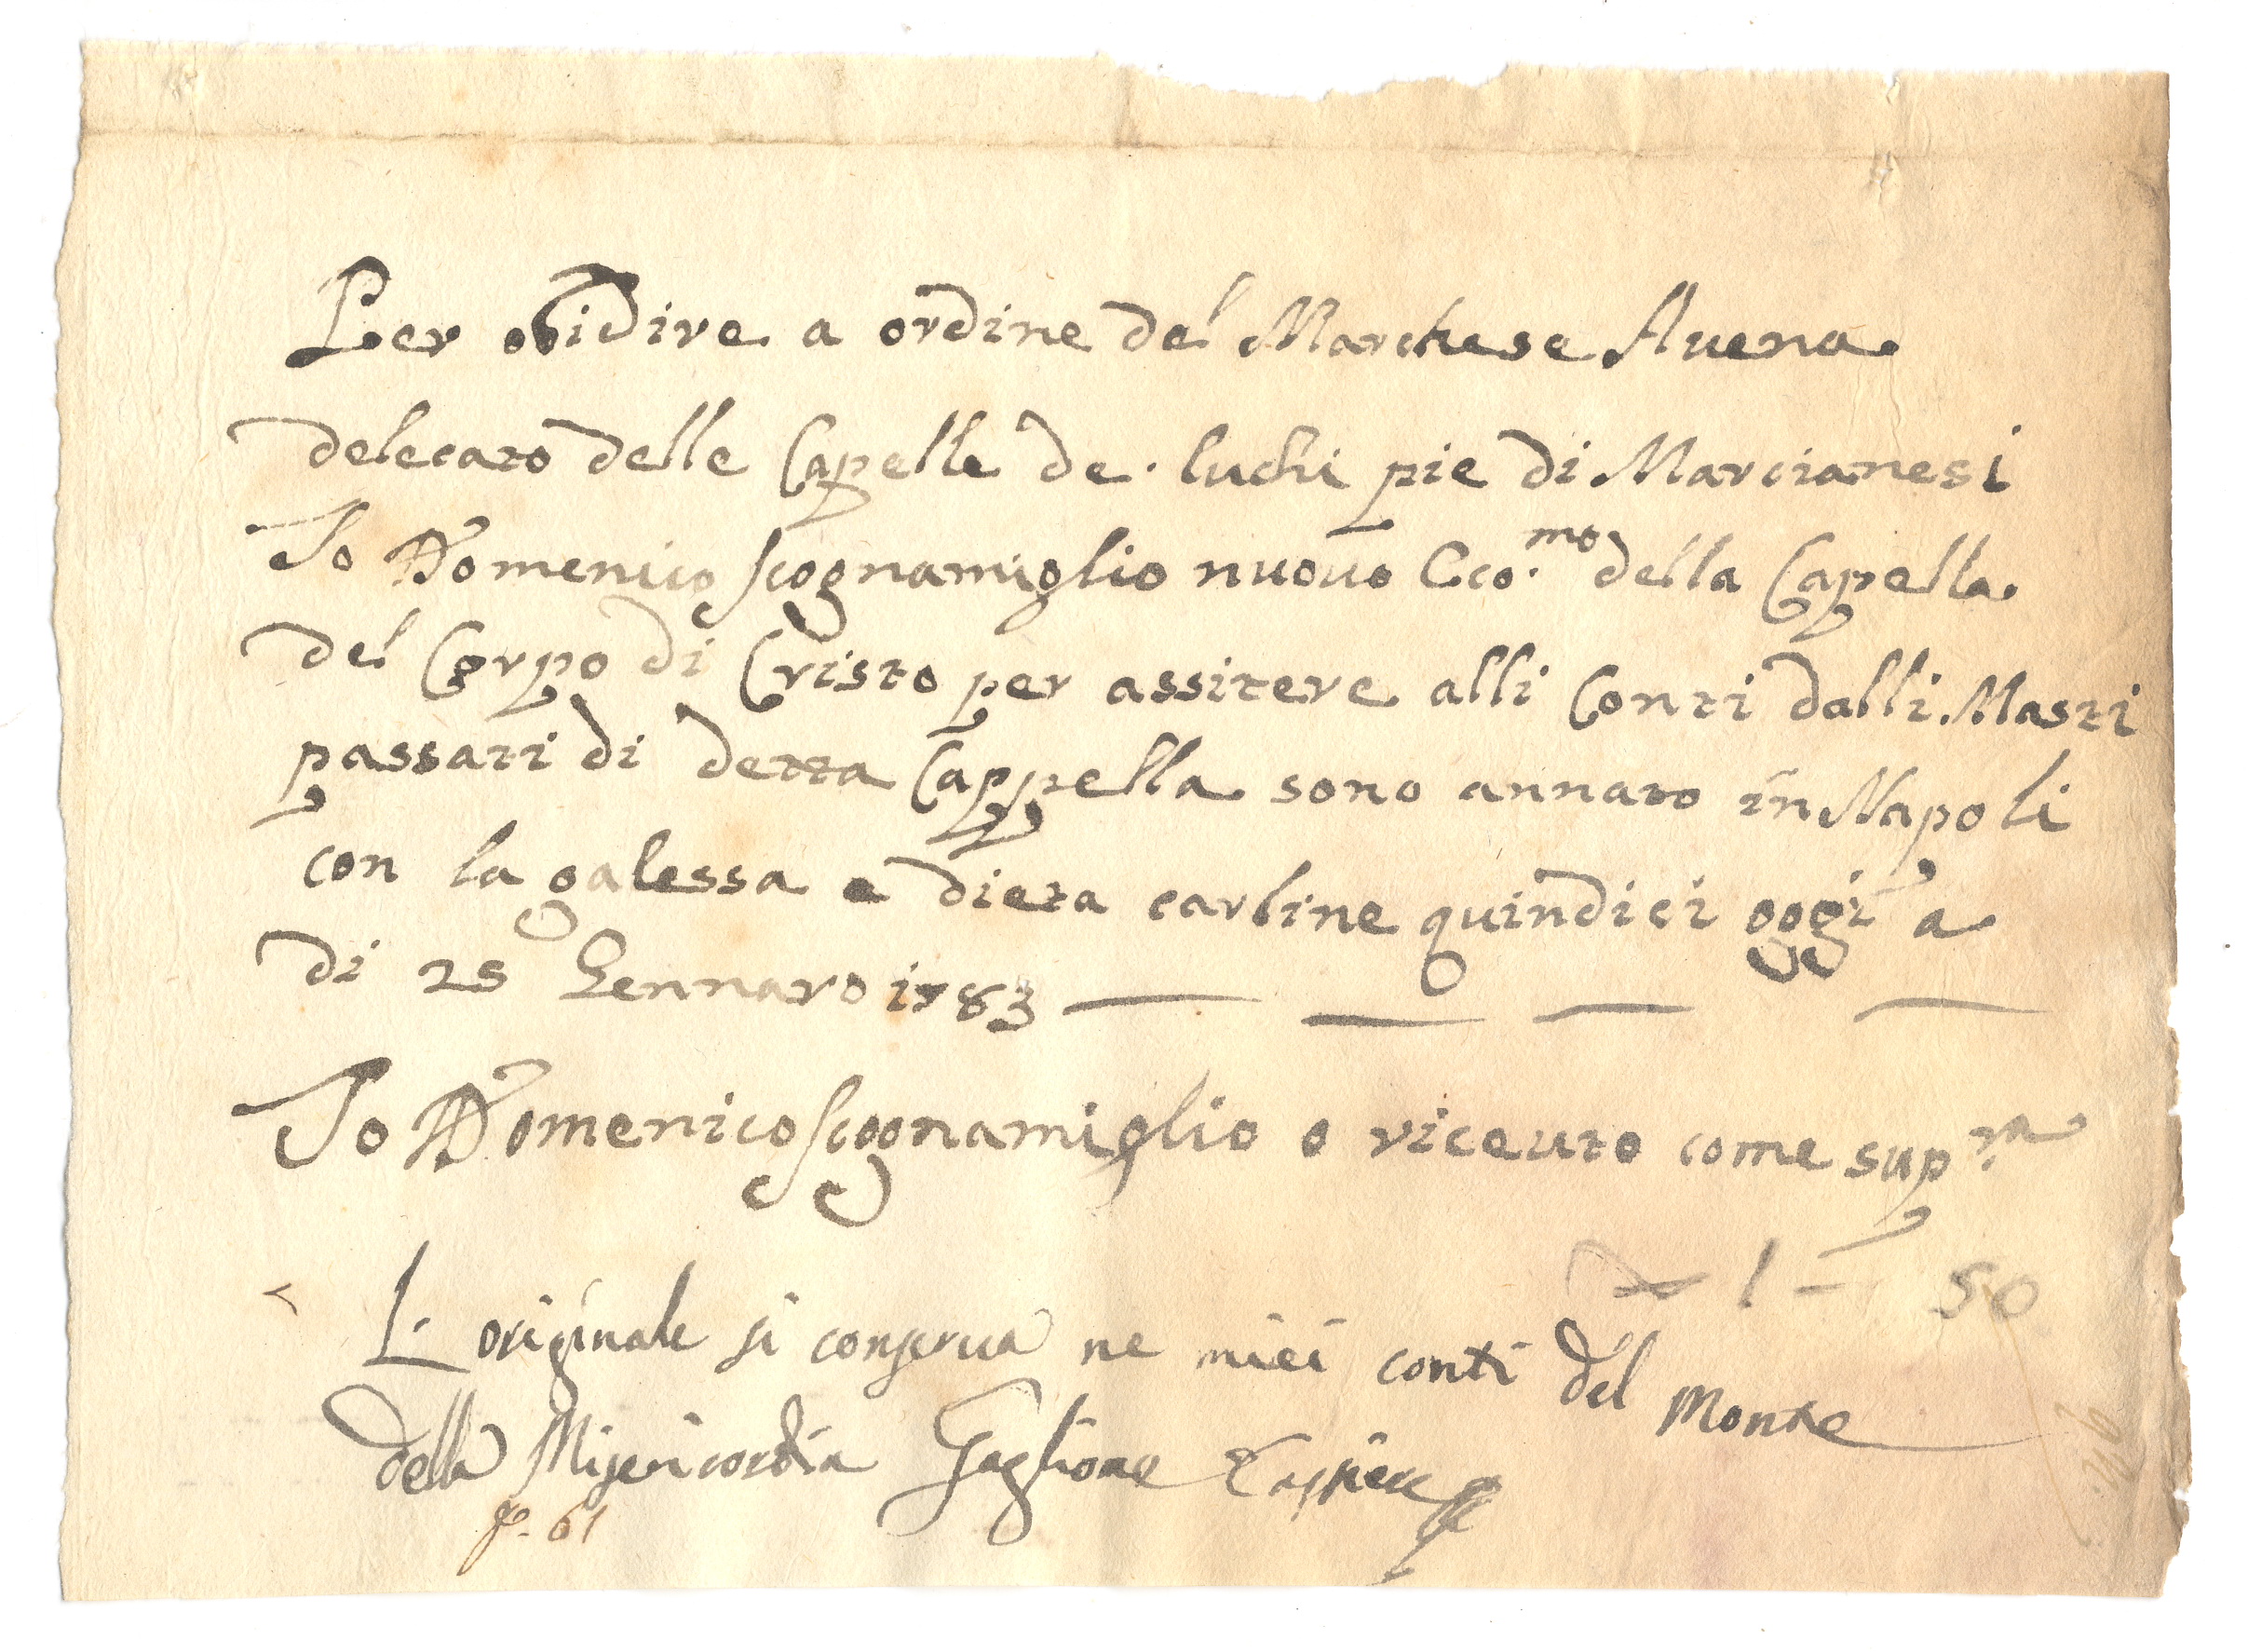 Per obidire a ordine del Marchese Auena
delecato delle Capelle de luchi pie di Marcianesi
Io Domenico Scognamiglio nuouo Eco.mo della Capella
del Corpo di Cristo per assitere alli Conti dalli Masti
passati di detta Cappella sono annato in Napoli
con la galessa e dieta carline quindici oggi a
di 25 Gennaro 1783
Io Domenico Scognamiglio o riceuto come sup.ra
1 – 50
L'originale si conserua ne miei conti del Monte
della Misericordia Gaglione
fo. 61